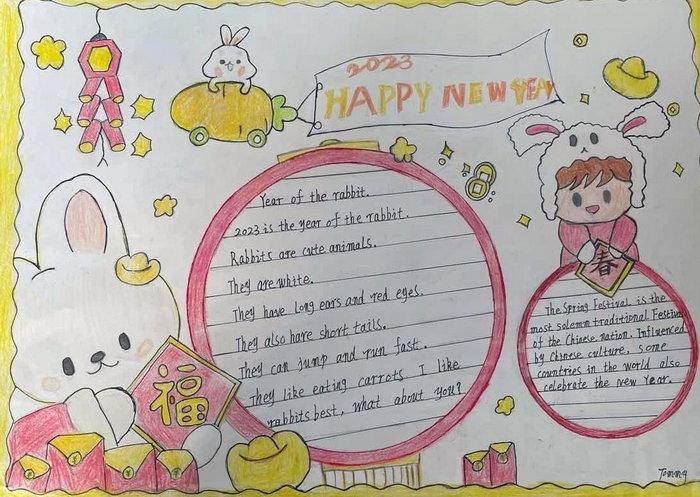 2023
HAPPY NEW YEAR
Year of the rabbit.
2023 is the year of the rabbit.
Rabbits are cute animals.
They are white.
They have long ears and red eyes.
They also have short tails.
They can jump and run fast.
They like eating carrots. I like
rabbits best, what about you?
福
春
The Spring Festival is the
most solemn traditional Festival
of the Chinese nation. Influenced
by Chinese culture, some
countries in the world also
celebrate the New Year.